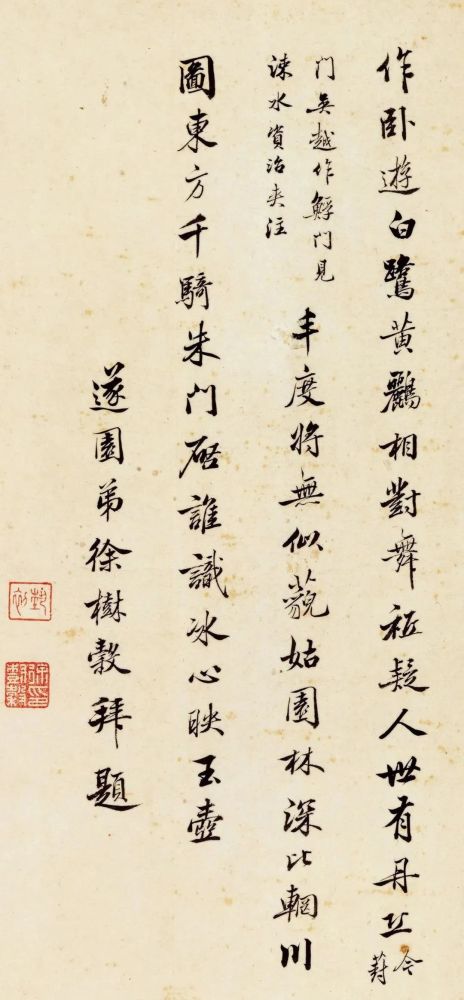 作卧遊白鷺黄鸝相對舞祗疑人世有丹丘今葑
門吳越作門見
涑水資治夾注
丰度將無似藐姑園林深比輞川
圖東方千騎朱門啓誰識冰心映玉壺
遂園弟徐樹穀拜題
藝初